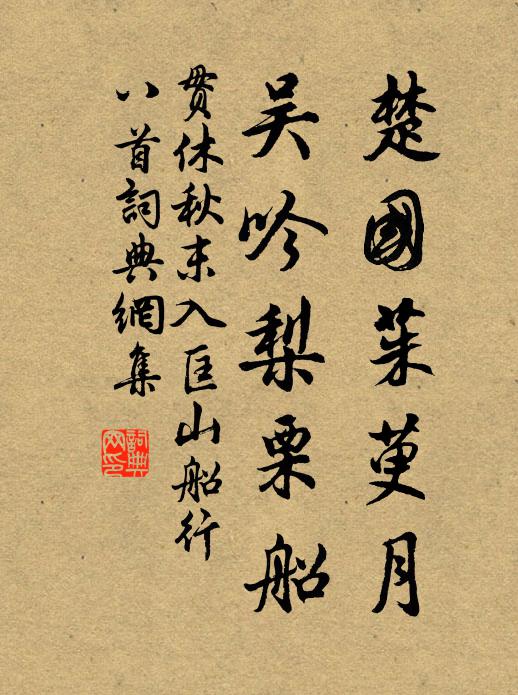 楚國茱萸月
吴吟梨栗船
貫休秋末入匡山船行
八首詞典網集
詞典网印